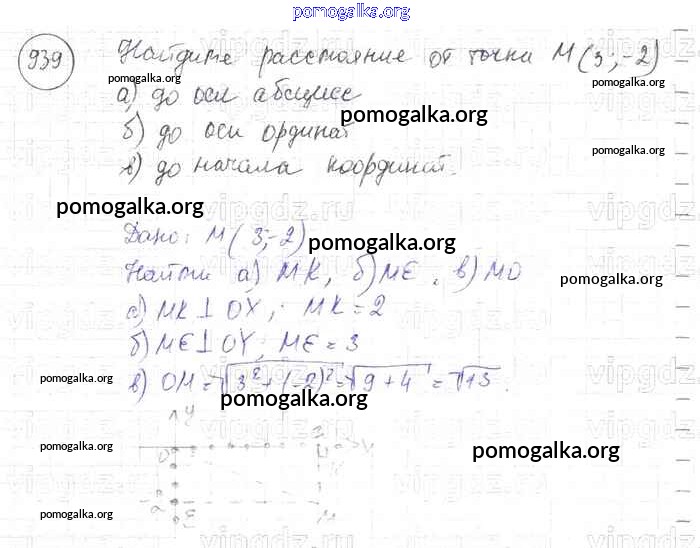 pomogalka.org
939 Найдите расстояние от точки M(3;-2)
а) до оси абсцисс
б) до оси ординат
в) до начала координат.
pomogalka.org
pomogalka.org
pomogalka.org
pomogalka.org
pomogalka.org
Дано: M(3;-2)
Найти а) MK, б) ME, в) MO
а) MK⊥OX; MK=2
б) ME⊥OY; ME=3
в) OM=√3²+(-2)²=√9+4=√13.
pomogalka.org
pomogalka.org
pomogalka.org
pomogalka.org
y
O
3
x
K
-2
E
M
pomogalka.org
pomogalka.org
pomogalka.org
vipgdz.ru